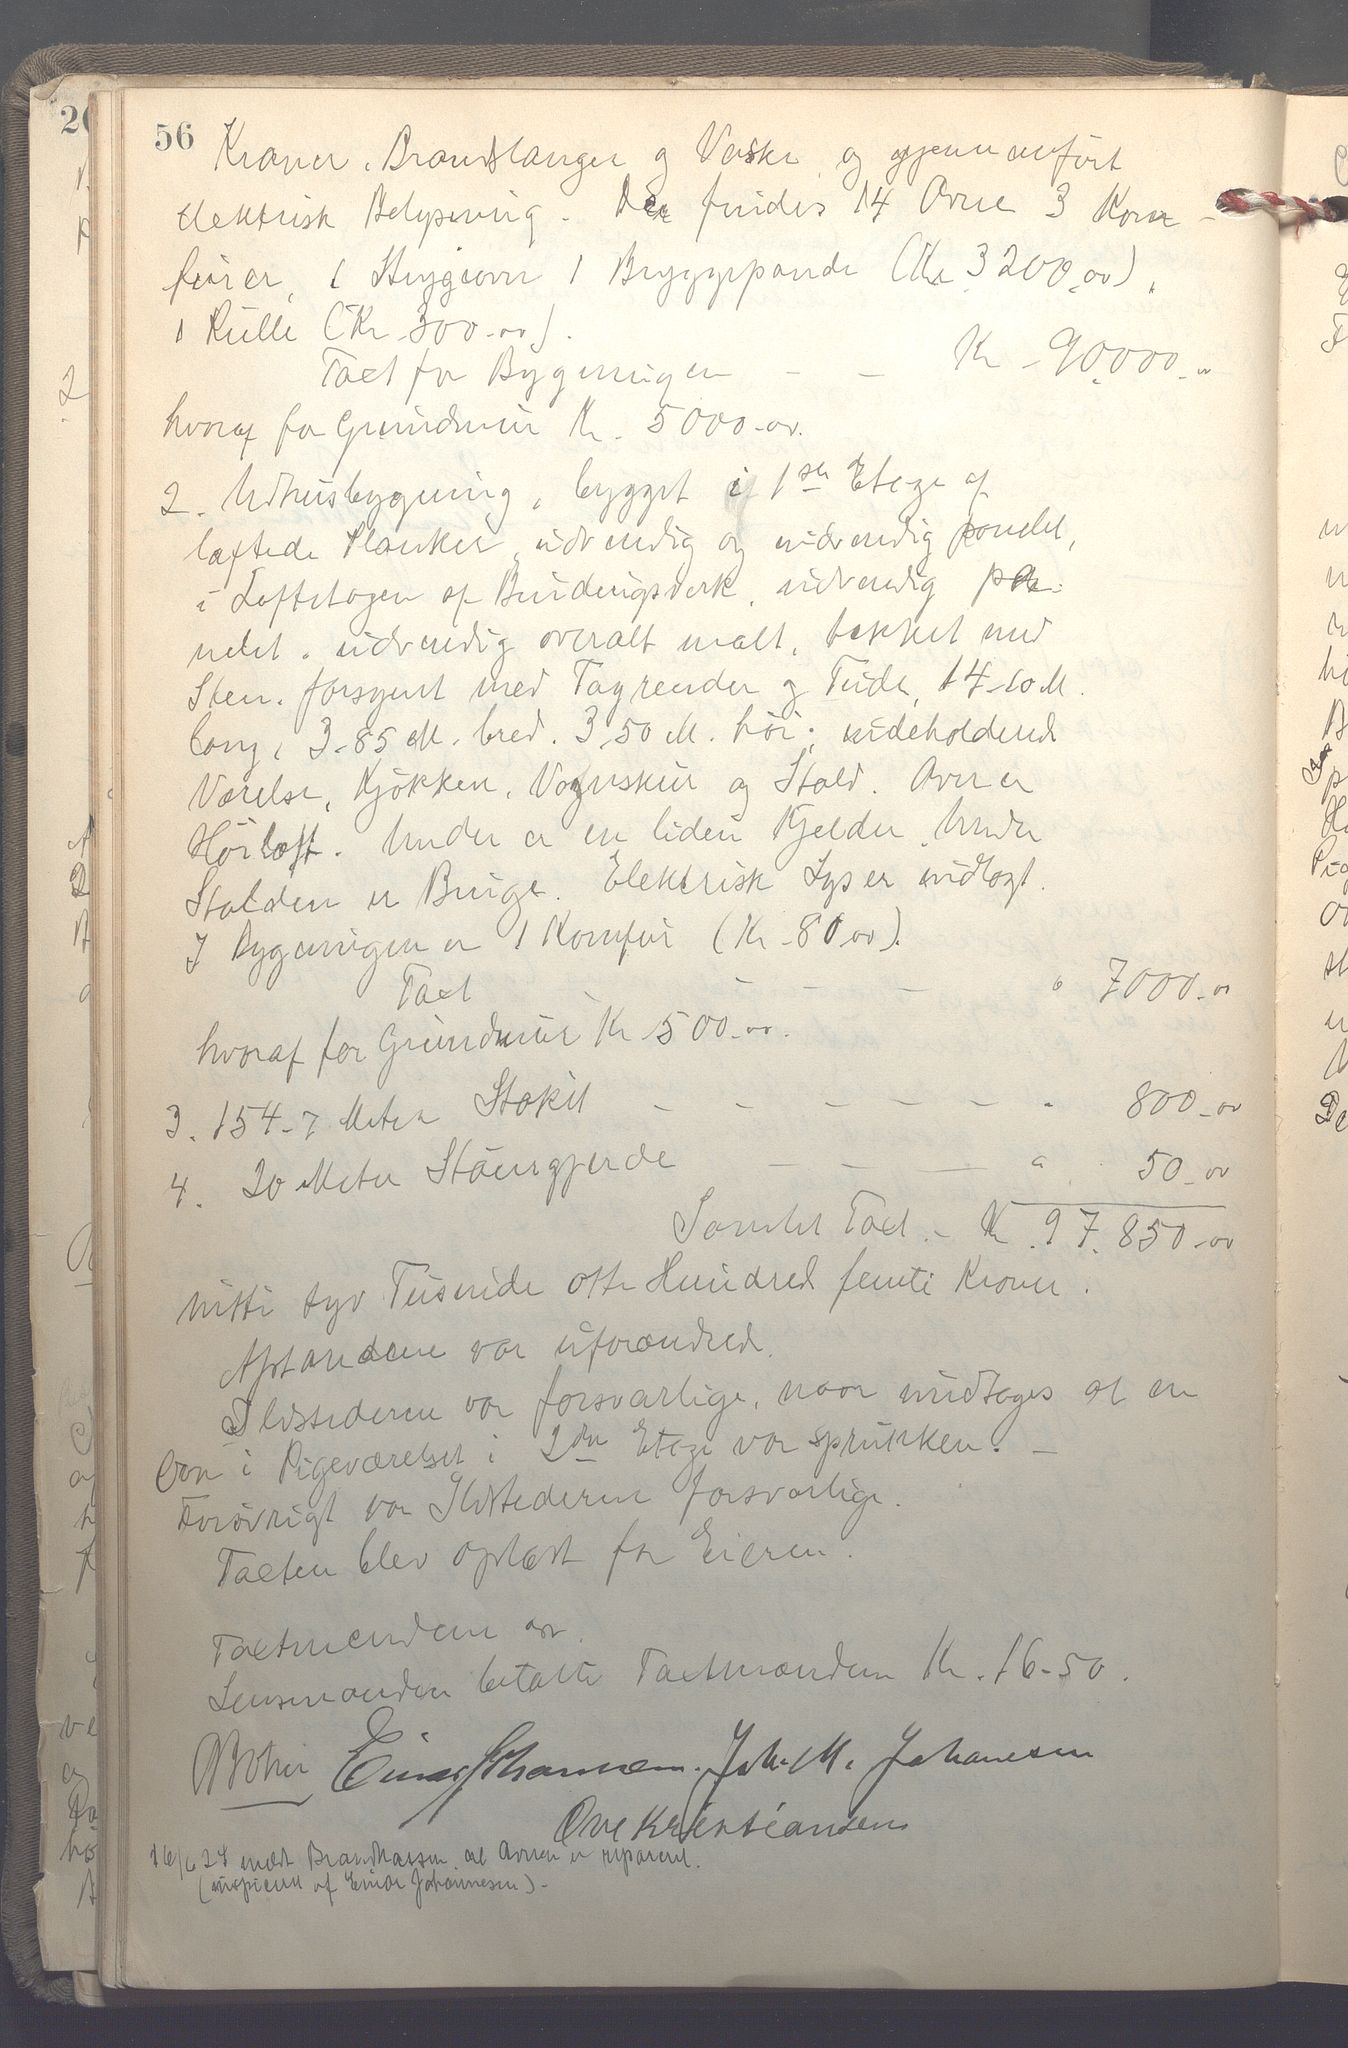 56
Kraner, Brandslanger og Vaske, og gjennemført
elektrisk Belysning. Der findes 14 Ovne 3 Kom-
fürer, 1 Strygeovn 1 Bryggepande (Kr 3200.00),
1 Rulle (Kr 300-00).
Taxt for Bygningen - - Kr - 90.000.-00
hvoraf for Grundmur Kr. 5000-00.
2. Udhusbygning, bygget i 1ste Etage af
laftede Planker, udvendig og indvendig panelet,
i Loftetagen af Bindingsverk, udvendig pa-
nelet, udvendig overalt malt, tækket med
Sten, forsynt med Tagrender og Nedl., 14-10 M.
lang, 3-85 M. bred, 3,50 M. høi; indeholdende
Værelse, Kjøkken, Vognskur og Stald. Over er
Høiloft. Under er en liden Kjelder, under
Stalden er Binge. Elektrisk Lys er indlagt.
I Bygningen er 1 Komfur (Kr - 80,00).
Taxt - - - " 7000-00
hvoraf for Grundmur Kr 500-00.
3. 154-7 Meter Stakit - - - - - - " 800-00
4. 20 Meter Steengjerde - - - " 50-00
Samlet Taxt - Kr. 97.850-00
nitti syv Tusinde otte Hundred femti Kroner.
Afstandene var uforandred.
Ildstederne var forsvarlige, naar undtages at en
Ovn i Pigeværelset i 2den Etage var sprukken. -
Forøvrigt var Ildstederne forsvarlige.
Taxten blev oplæst for Eieren.
Taxtmændene
Lensmanden betalte Taxtmændene Kr. 16-50.
Einar Johannesen. Joh. M. Johanesen
Ove Kristiansen
16/6 24 medt Brandkassen, at Ovnen er repareret.
(inspiceret af Einar Johannesen) -